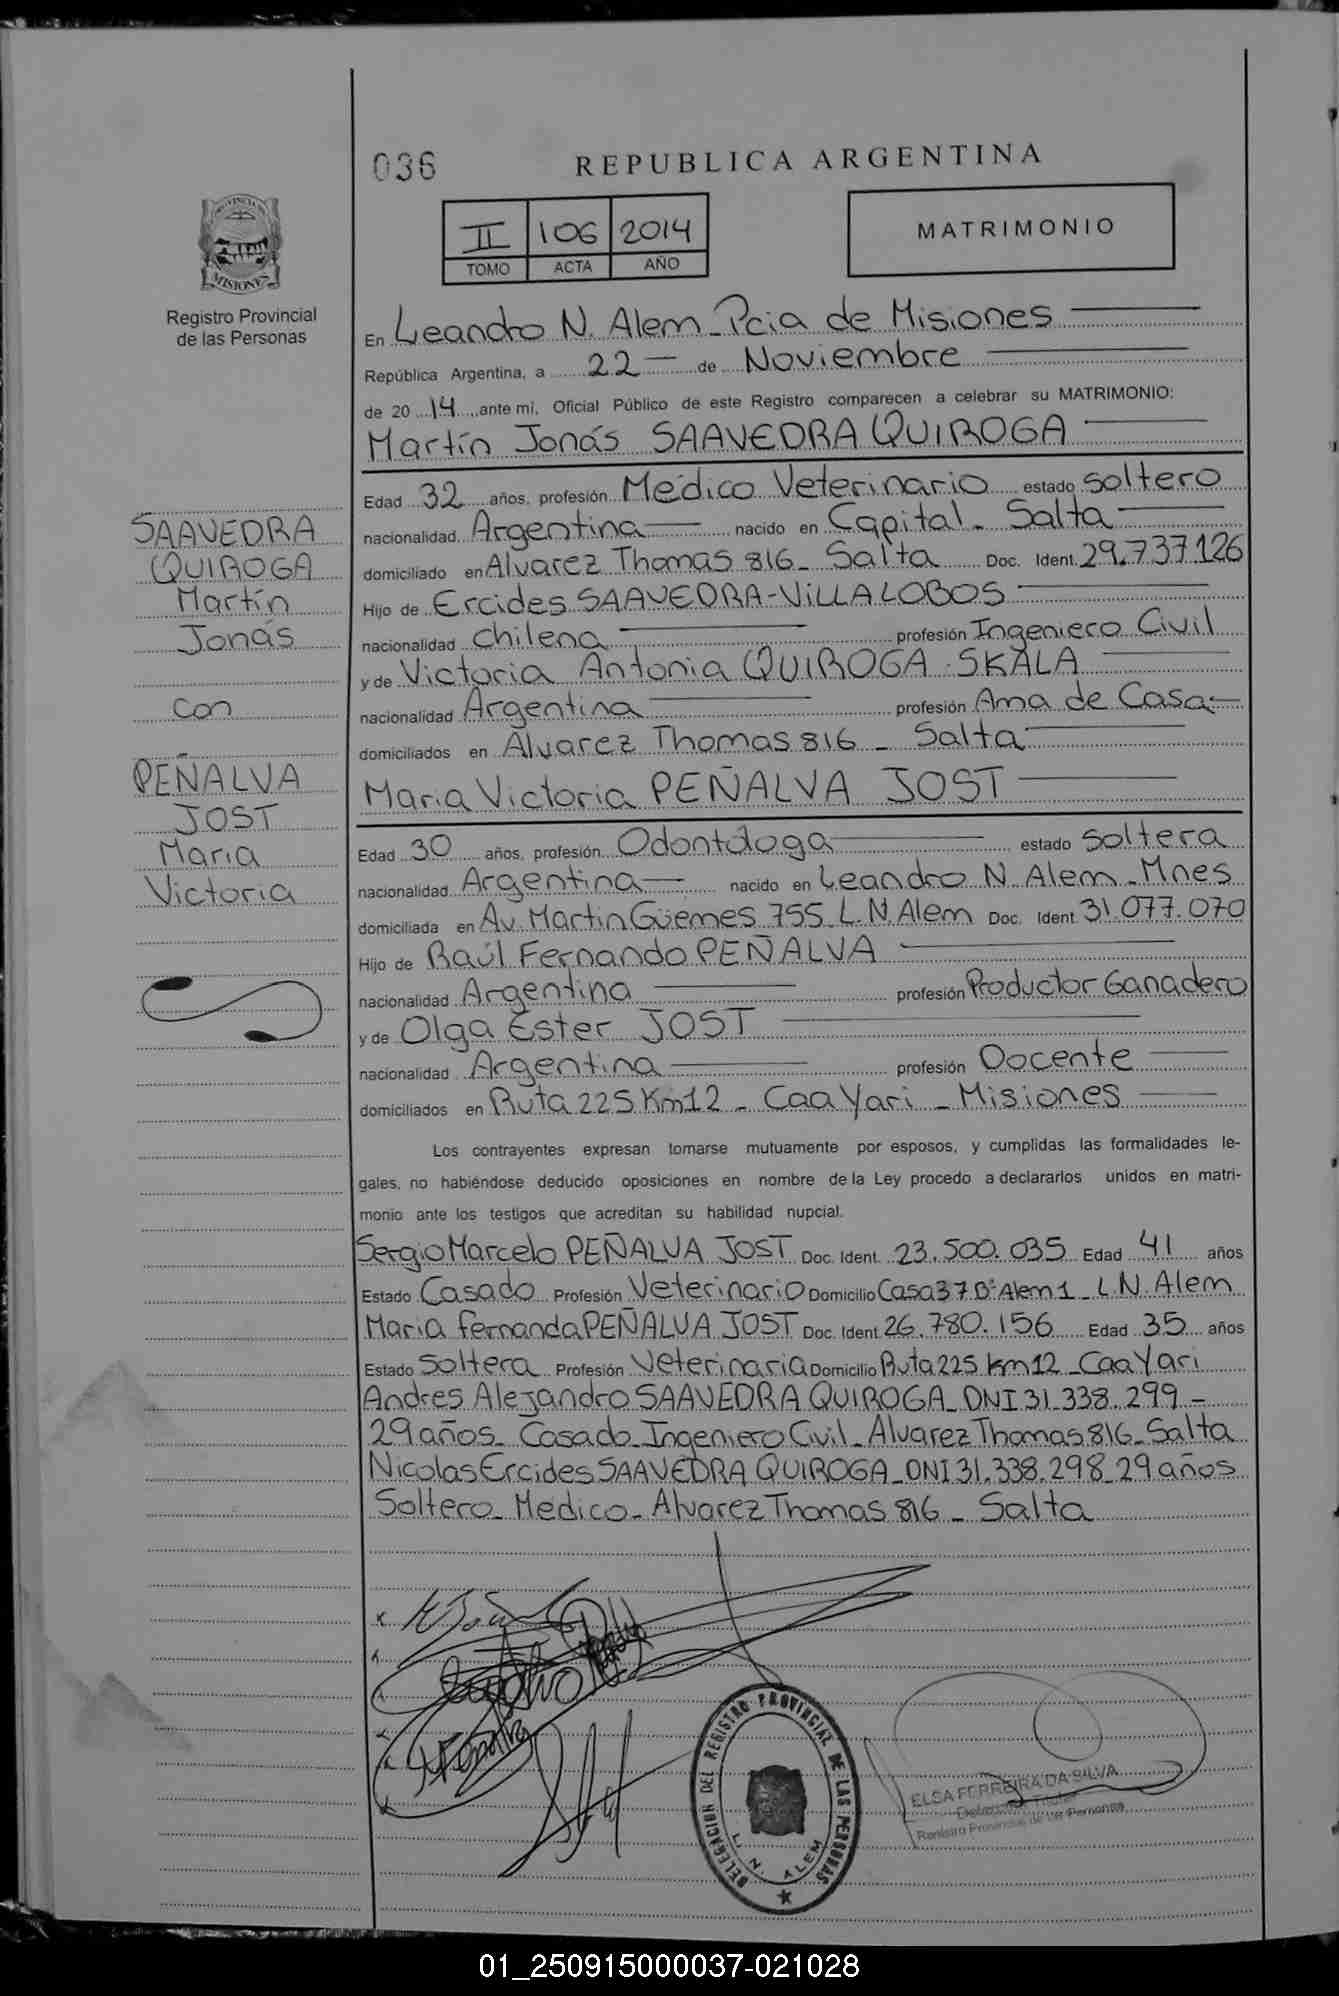 036
REPUBLICA ARGENTINA
II 106 2014
TOMO ACTA AÑO
MATRIMONIO
PROVINCIA DE
MISIONES
Registro Provincial
de las Personas
En Leandro N. Alem - Pcia de Misiones
República Argentina, a 22 de Noviembre
de 2014, ante mi, Oficial Público de este Registro comparecen a celebrar su MATRIMONIO:
Martín Jonás SAAVEDRA QUIROGA
Edad 32 años, profesión Médico Veterinario estado soltero
nacionalidad Argentina nacido en Capital - Salta
domiciliado en Alvarez Thomas 816 - Salta Doc. Ident. 29.737.126
Hijo de Ercides SAAVEDRA-VILLALOBOS
nacionalidad chilena profesión Ingeniero Civil
y de Victoria Antonia QUIROGA SKALA
nacionalidad Argentina profesión Ama de Casa
domiciliados en Alvarez Thomas 816 - Salta
Maria Victoria PEÑALVA JOST
Edad 30 años, profesión Odontóloga estado soltera
nacionalidad Argentina nacido en Leandro N. Alem - Mnes
domiciliada en Av. Martin Güemes 755 L.N. Alem Doc. Ident. 31.077.070
Hijo de Raúl Fernando PEÑALVA
nacionalidad Argentina profesión Productor Ganadero
y de Olga Ester JOST
nacionalidad Argentina profesión Docente
domiciliados en Ruta 225 Km12 - Caa Yari - Misiones
Los contrayentes expresan tomarse mutuamente por esposos, y cumplidas las formalidades le-
gales, no habiéndose deducido oposiciones en nombre de la Ley procedo a declararlos unidos en matri-
monio ante los testigos que acreditan su habilidad nupcial.
Sergio Marcelo PEÑALVA JOST Doc. Ident. 23.500.035 Edad 41 años
Estado Casado Profesión Veterinario Domicilio Casa 37 Bº Alem 1 - L.N. Alem
Maria Fernanda PEÑALVA JOST Doc. Ident. 26.780.156 Edad 35 años
Estado Soltera Profesión Veterinaria Domicilio Ruta 225 Km12 - Caa Yari
Andres Alejandro SAAVEDRA QUIROGA - DNI 31.338.299 -
29 años - Casado - Ingeniero Civil - Alvarez Thomas 816 - Salta
Nicolas Ercides SAAVEDRA QUIROGA - DNI 31.338.298 - 29 años
Soltero - Medico - Alvarez Thomas 816 - Salta
SAAVEDRA
QUIROGA
Martín
Jonás
con
PEÑALVA
JOST
Maria
Victoria
DELEGACION DEL REGISTRO PROVINCIAL DE LAS PERSONAS
L. N. ALEM
ELSA FERREIRA DA SILVA
Delegada Titular
Registro Provincial de las Personas
01_250915000037-021028